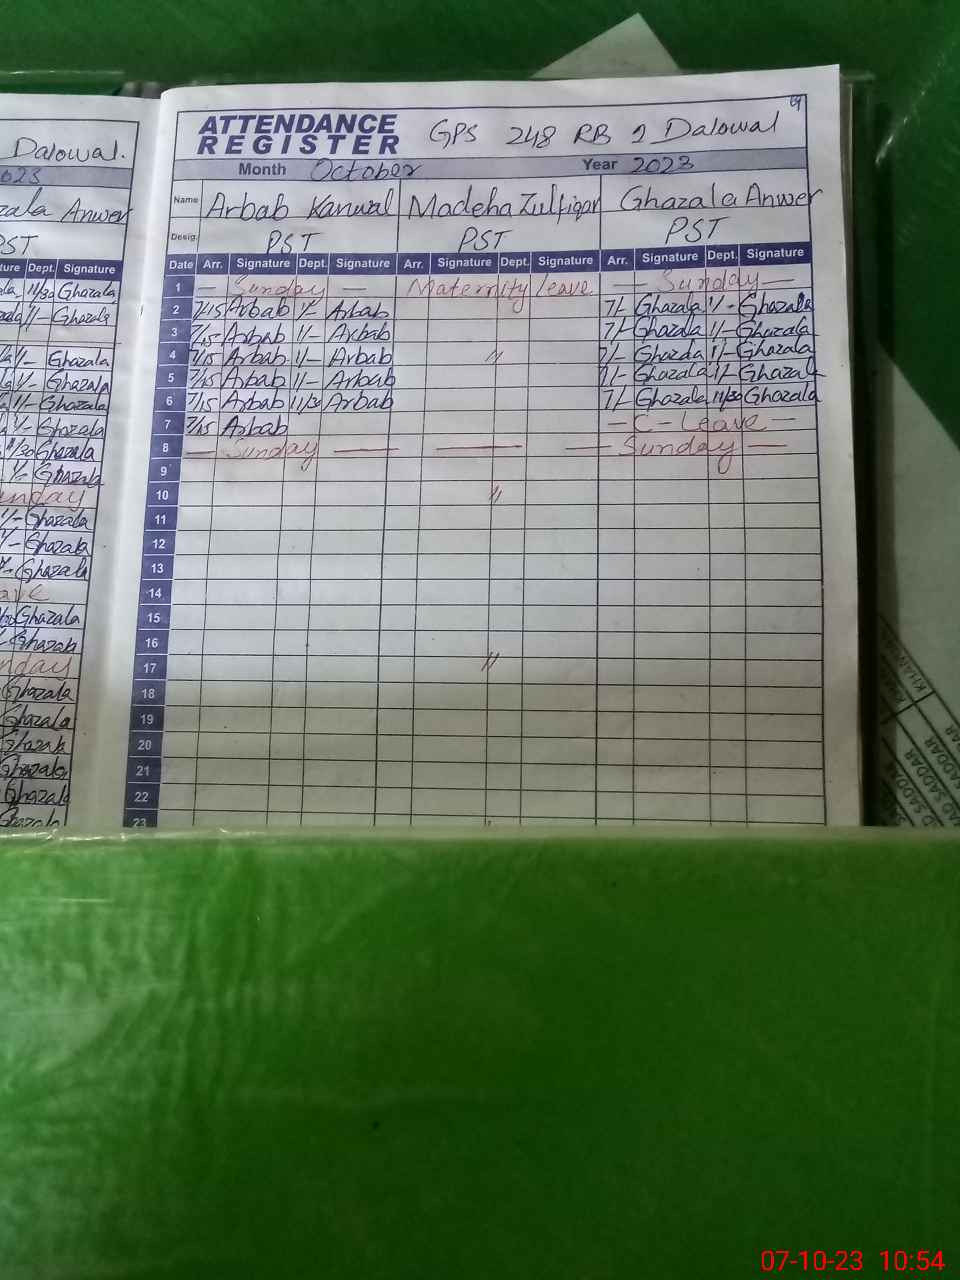 Dalowal.
023
zala Anwer
PST
ture Dept. Signature
11/30 Ghazala
1/- Ghazala
1/- Ghazala
1/- Ghazala
11/- Ghazala
1/- Ghazala
1/30 Ghazala
1/- Ghazala
unday
1/- Ghazala
1/- Ghazala
Ghazala
ave
Ghazala
Ghazala
nday
Ghazala
Ghazala
Ghazala
Ghazala
ATTENDANCE
REGISTER GPS 248 RB 2 Dalowal
Month October Year 2023
Name Arbab Kanwal Madeha Zulfiqar Ghazala Anwer
Desig. PST PST PST
Date Arr. Signature Dept. Signature Arr. Signature Dept. Signature Arr. Signature Dept. Signature
1 — Sunday — Maternity leave — Sunday —
2 7/15 Arbab 1/- Arbab 7/- Ghazala 1/- Ghazala
3 7/15 Arbab 11/- Arbab 7/- Ghazala 11/- Ghazala
4 7/15 Arbab 11/- Arbab // 7/- Ghazala 1/- Ghazala
5 7/15 Arbab 1/- Arbab 7/- Ghazala 1/- Ghazala
6 7/15 Arbab 11/30 Arbab 7/- Ghazala 11/30 Ghazala
7 7/15 Arbab - C - Leave -
8 — Sunday — — — Sunday —
9
10 //
11
12
13
14
15
16
17 //
18
19
20
21
22
23
SADDAR
07-10-23 10:54